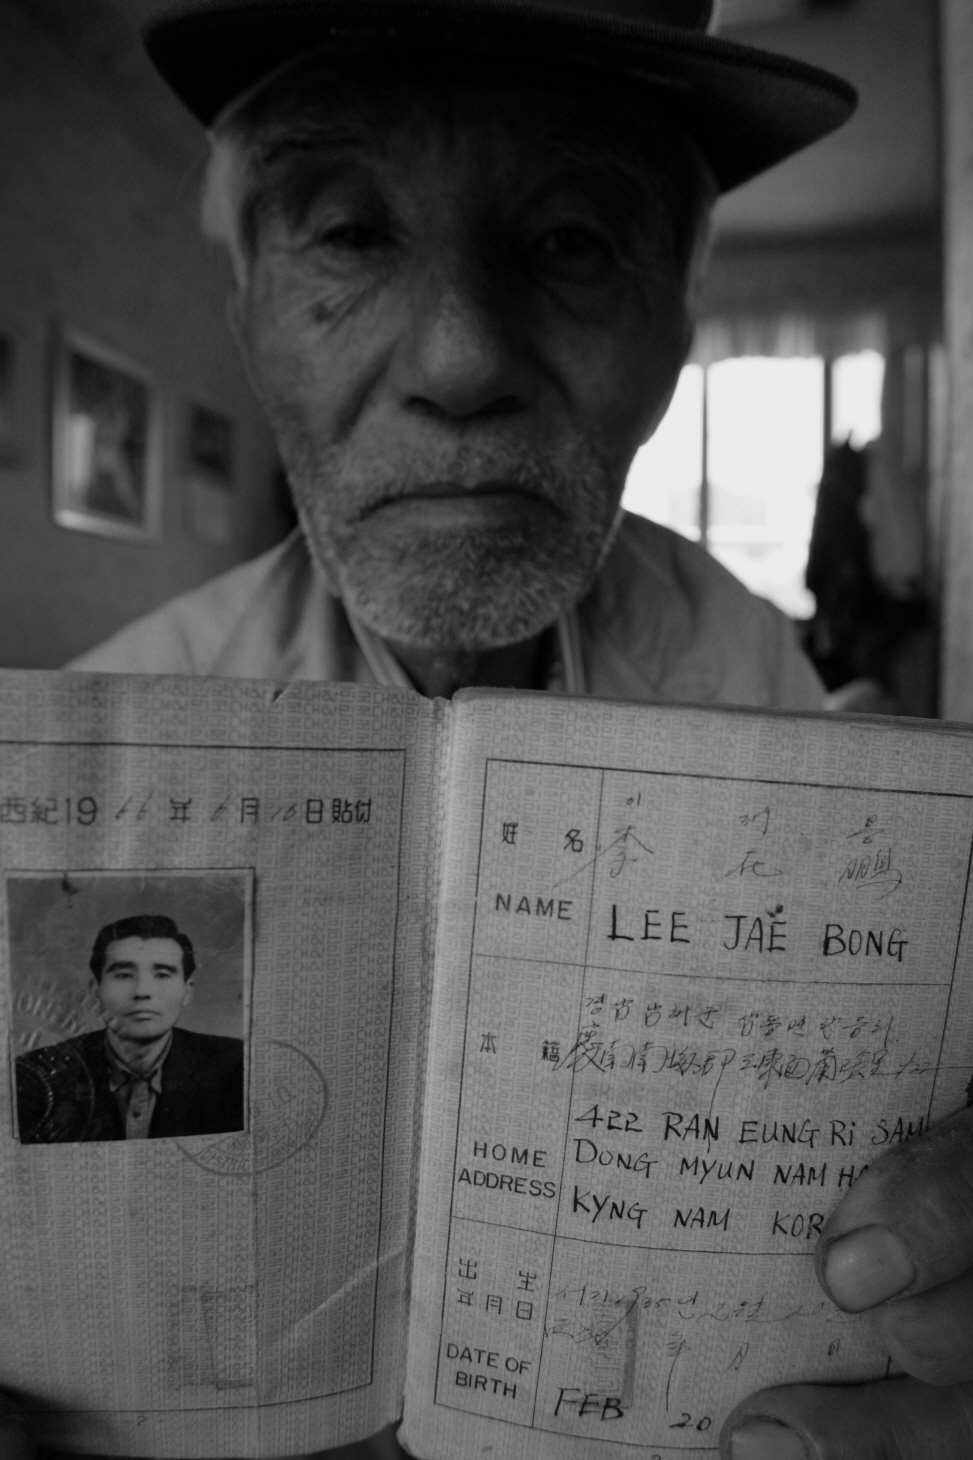 西紀19 66 年 6 月 10 日貼付
姓 名
이 재 붕
李 在 鵬
NAME
LEE JAE BONG
本 籍
경남 남해군 삼동면 란응리
慶南 南海郡 三東面 蘭
HOME
ADDRESS
422 RAN EUNG Ri SAM
DONG MYUN NAM HA
KYNG NAM KOR
出 生
年 月 日
年 月 日
DATE OF
BIRTH
FEB 20
2